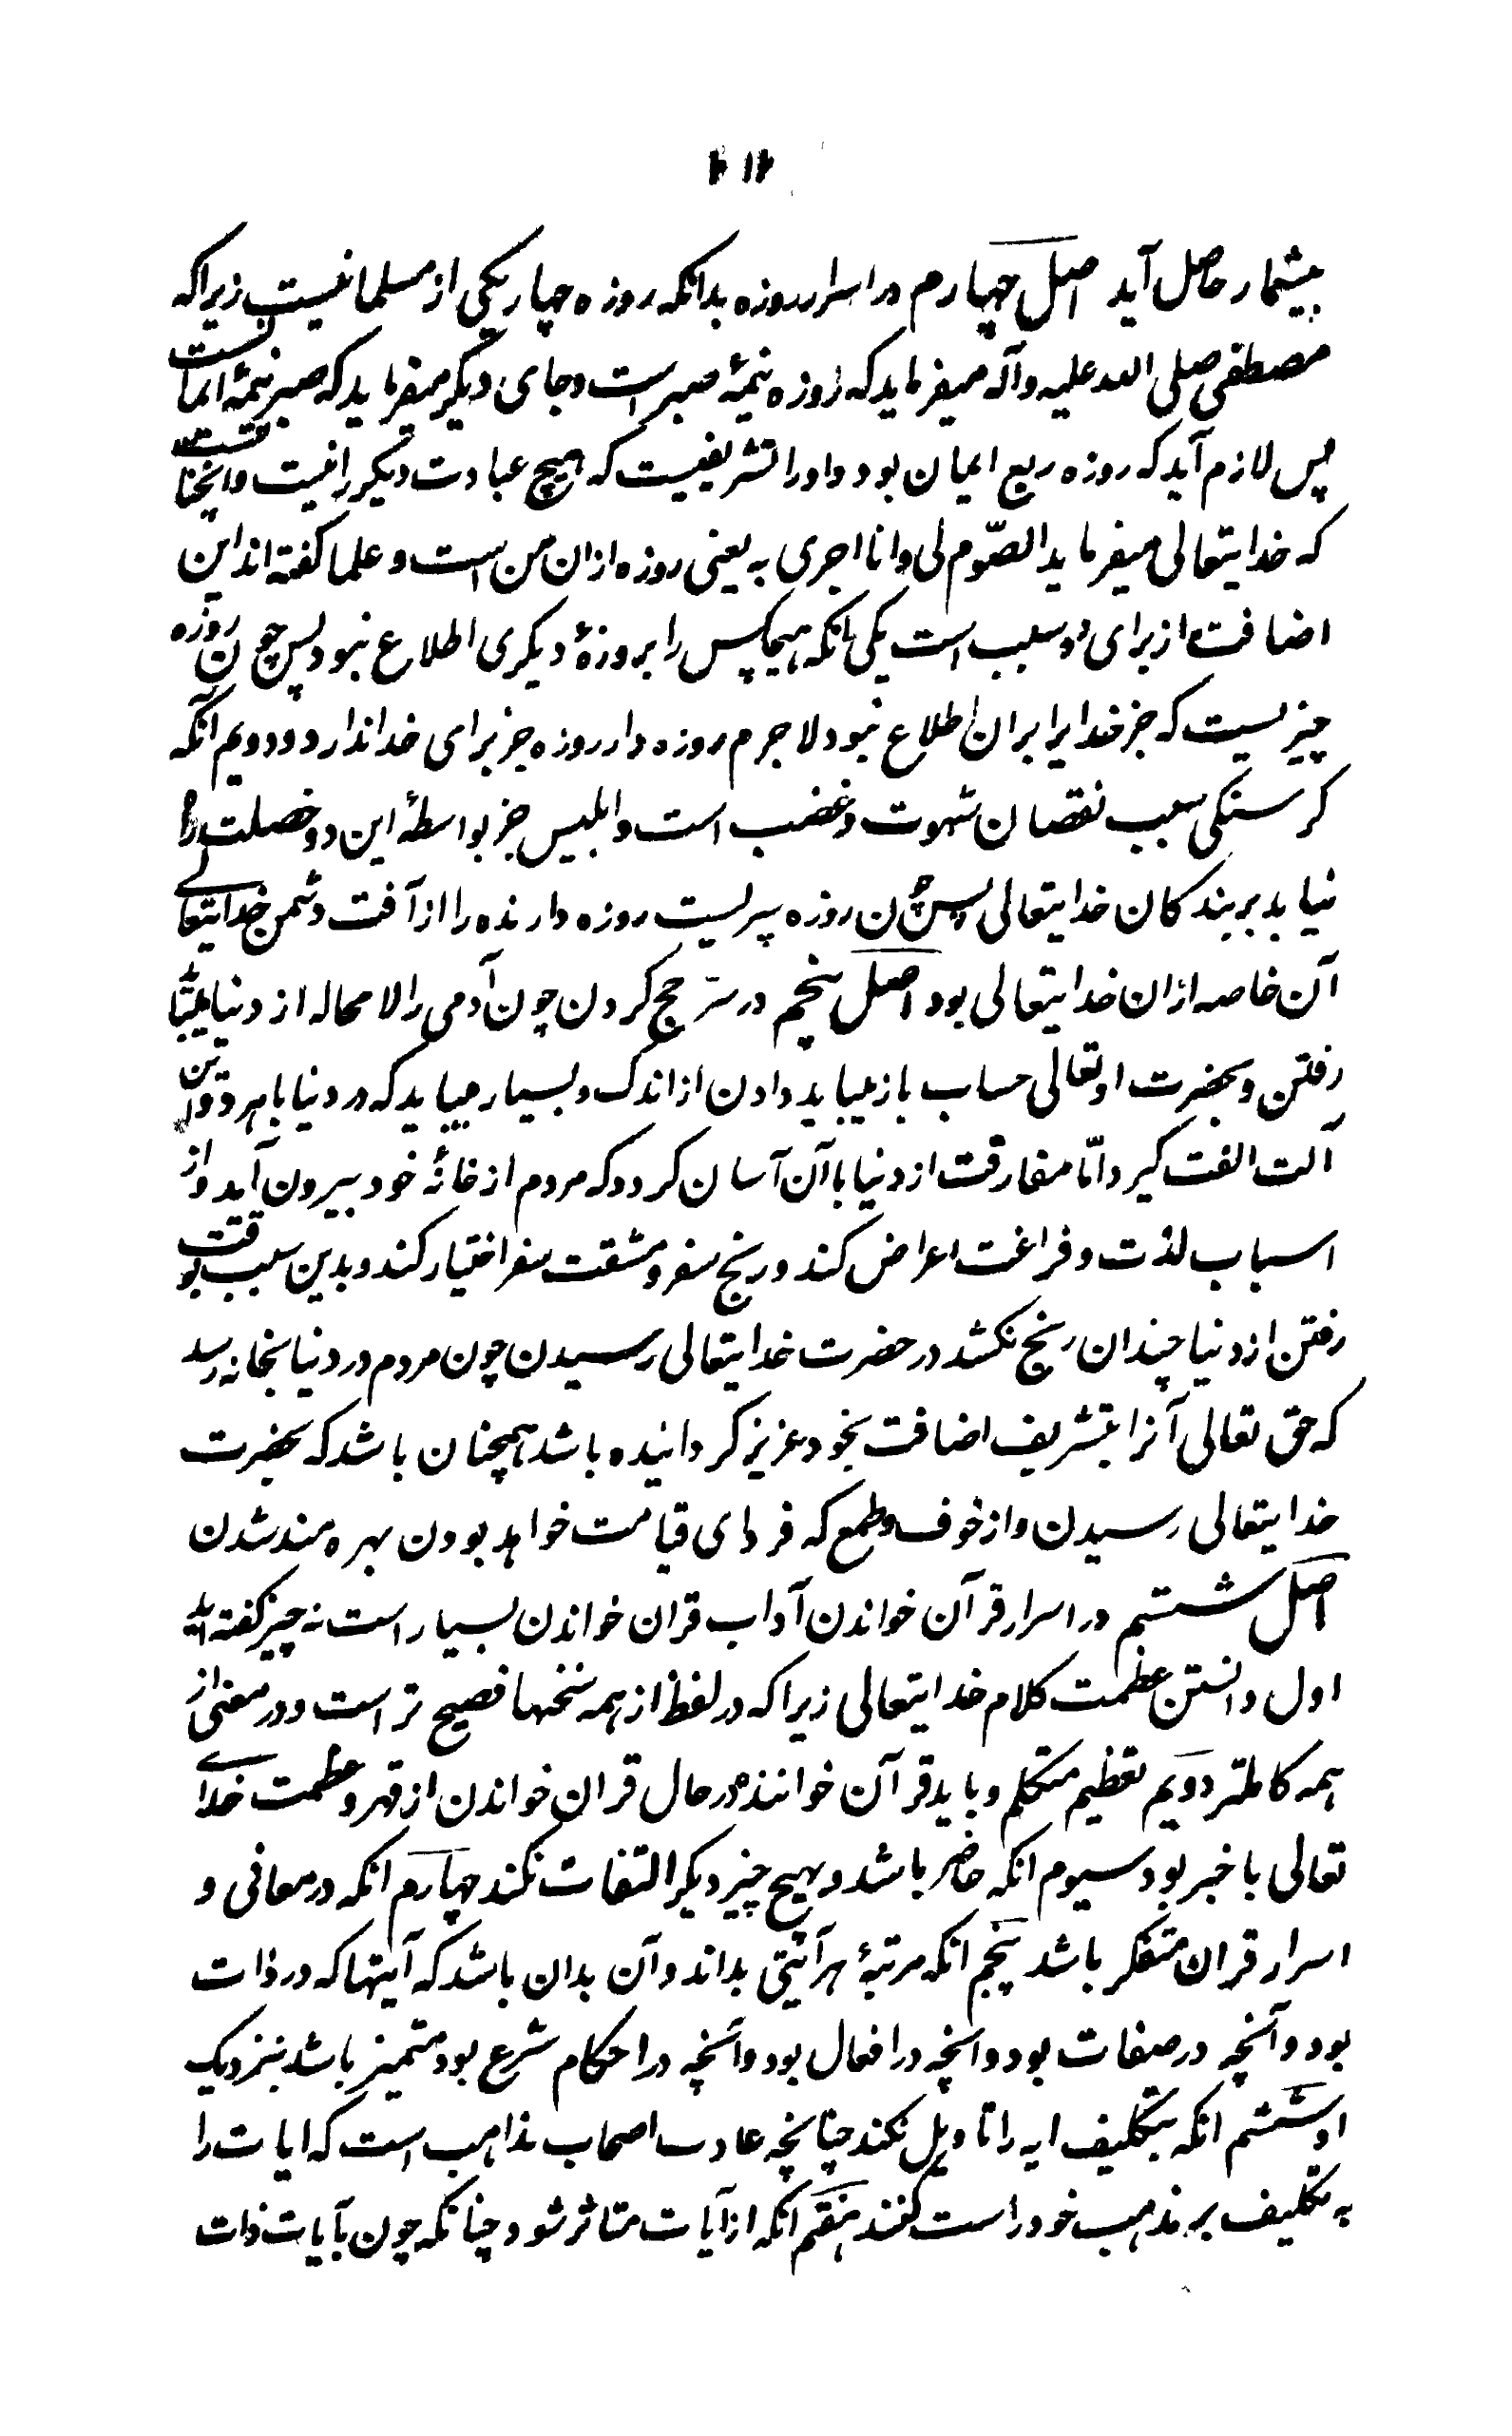 ۲۱۲
بیشمار حاصل آید اصل چهارم در اسرار روزه بدانکه روزه چهار یکی از مسلمانیست زیراکه
مصطفی صلی الله علیه وآله میفرماید که روزه نیمهٔ صبر است و جای دیگر میفرماید که صبر نیمهٔ ایمانست
پس لازم آید که روزه ربع ایمان بود و او را تشریفیست که هیچ عبادت دیگر را نیست و آنچنانست
که خدایتعالی میفرماید الصّوم لی وانا اجری به یعنی روزه ازان من است و علما گفته اند این
اضافت از برای دو سبب است یکی آنکه هیچکس را بروزهٔ دیگری اطلاع نبود پس چون روزه
چیزیست که جز خدایرا بران اطلاع نبود لاجرم روزه دار روزه جز برای خدا ندارد و دویم آنکه
گرسنگی سبب نقصان شهوت و غضب است و ابلیس جز بواسطهٔ این دو خصلت راه
نیابد بر بندگان خدایتعالی پس چون روزه سپریست روزه دارنده را از آفت دشمن خدایتعالی
آن خاصه ازان خدایتعالی بود اصل پنجم در سرّ حج کردن چون آدمی را لامحاله از دنیا
رفتن و بحضرت او تعالی حساب باز میباید دادن از اندک و بسیار میباید که در دنیا باهر دو این
آلت الفت گیرد امّا مفارقت از دنیا باآن آسان گردد که مردم از خانهٔ خود بیرون آید و از
اسباب لذت و فراغت اعراض کند و رنج سفر و مشقت سفر اختیار کند و بدین سبب بوقت
رفتن از دنیا چندان رنج نکشد در حضرت خدایتعالی رسیدن چون مردم در دنیا بخانه رسد
که حق تعالی آنرا بتشریف اضافت بخود عزیز گردانیده باشد همچنان باشد که بحضرت
خدایتعالی رسیدن و از خوف و طمع که فردای قیامت خواهد بودن بهره مند شدن
اصل ششم در اسرار قرآن خواندن آداب قران خواندن بسیار است نه چیز گفته آید
اول دانستن عظمت کلام خدایتعالی زیراکه در لفظ از همه سخنها فصیح تر است و در معنی از
همه کاملتر دویم تعظیم متکلم و باید قرآن خواننده در حال قران خواندن از قهر و عظمت خدای
تعالی با خبر بود سیوم انکه حاضر باشد و بهیچ چیز دیگر التفات نکند چهارم انکه در معانی و
اسرار قران متفکر باشد پنجم انکه مرتبهٔ هر آیتی بداند و آن بدان باشد که آیتها که در ذات
بود و آنچه در صفات بود و انچه در افعال بود و آنچه در احکام شرع بود متمیز باشد بنزدیک
او ششم انکه بتکلیف ایه را تاویل نکند چنانچه عادت اصحاب مذاهب است که ایات را
به تکلیف بر مذهب خود راست کنند هفتم انکه از آیات متاثر شود چنانکه چون بآیات ذات